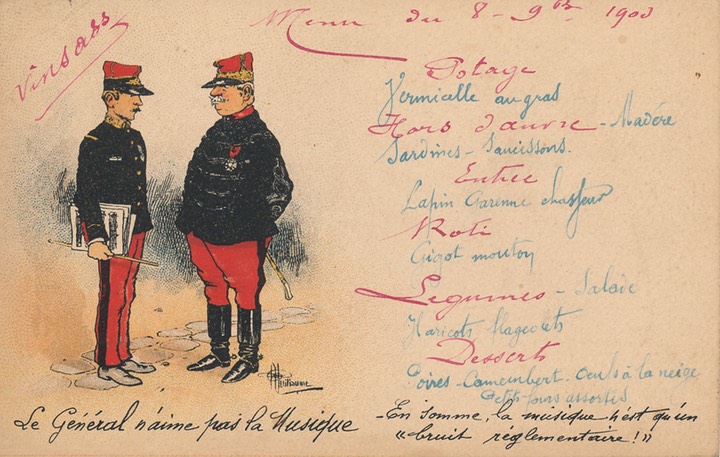 Vinsass
Menu du 8 - 9bre 1903
Potage
Vermicelle au gras
Hors d'œuvre - Madère
Sardines - Saucissons.
Entrée
Lapin Garenne chasseur
Roti
Gigot mouton
Legumes - Salade
Haricots flageolets
Desserts
Poires - Camembert - Oeufs à la neige
Petits fours assortis
Guillaume
Le Général n'aime pas la Musique
- En somme, la musique n'est qu'un
« bruit réglementaire ! »